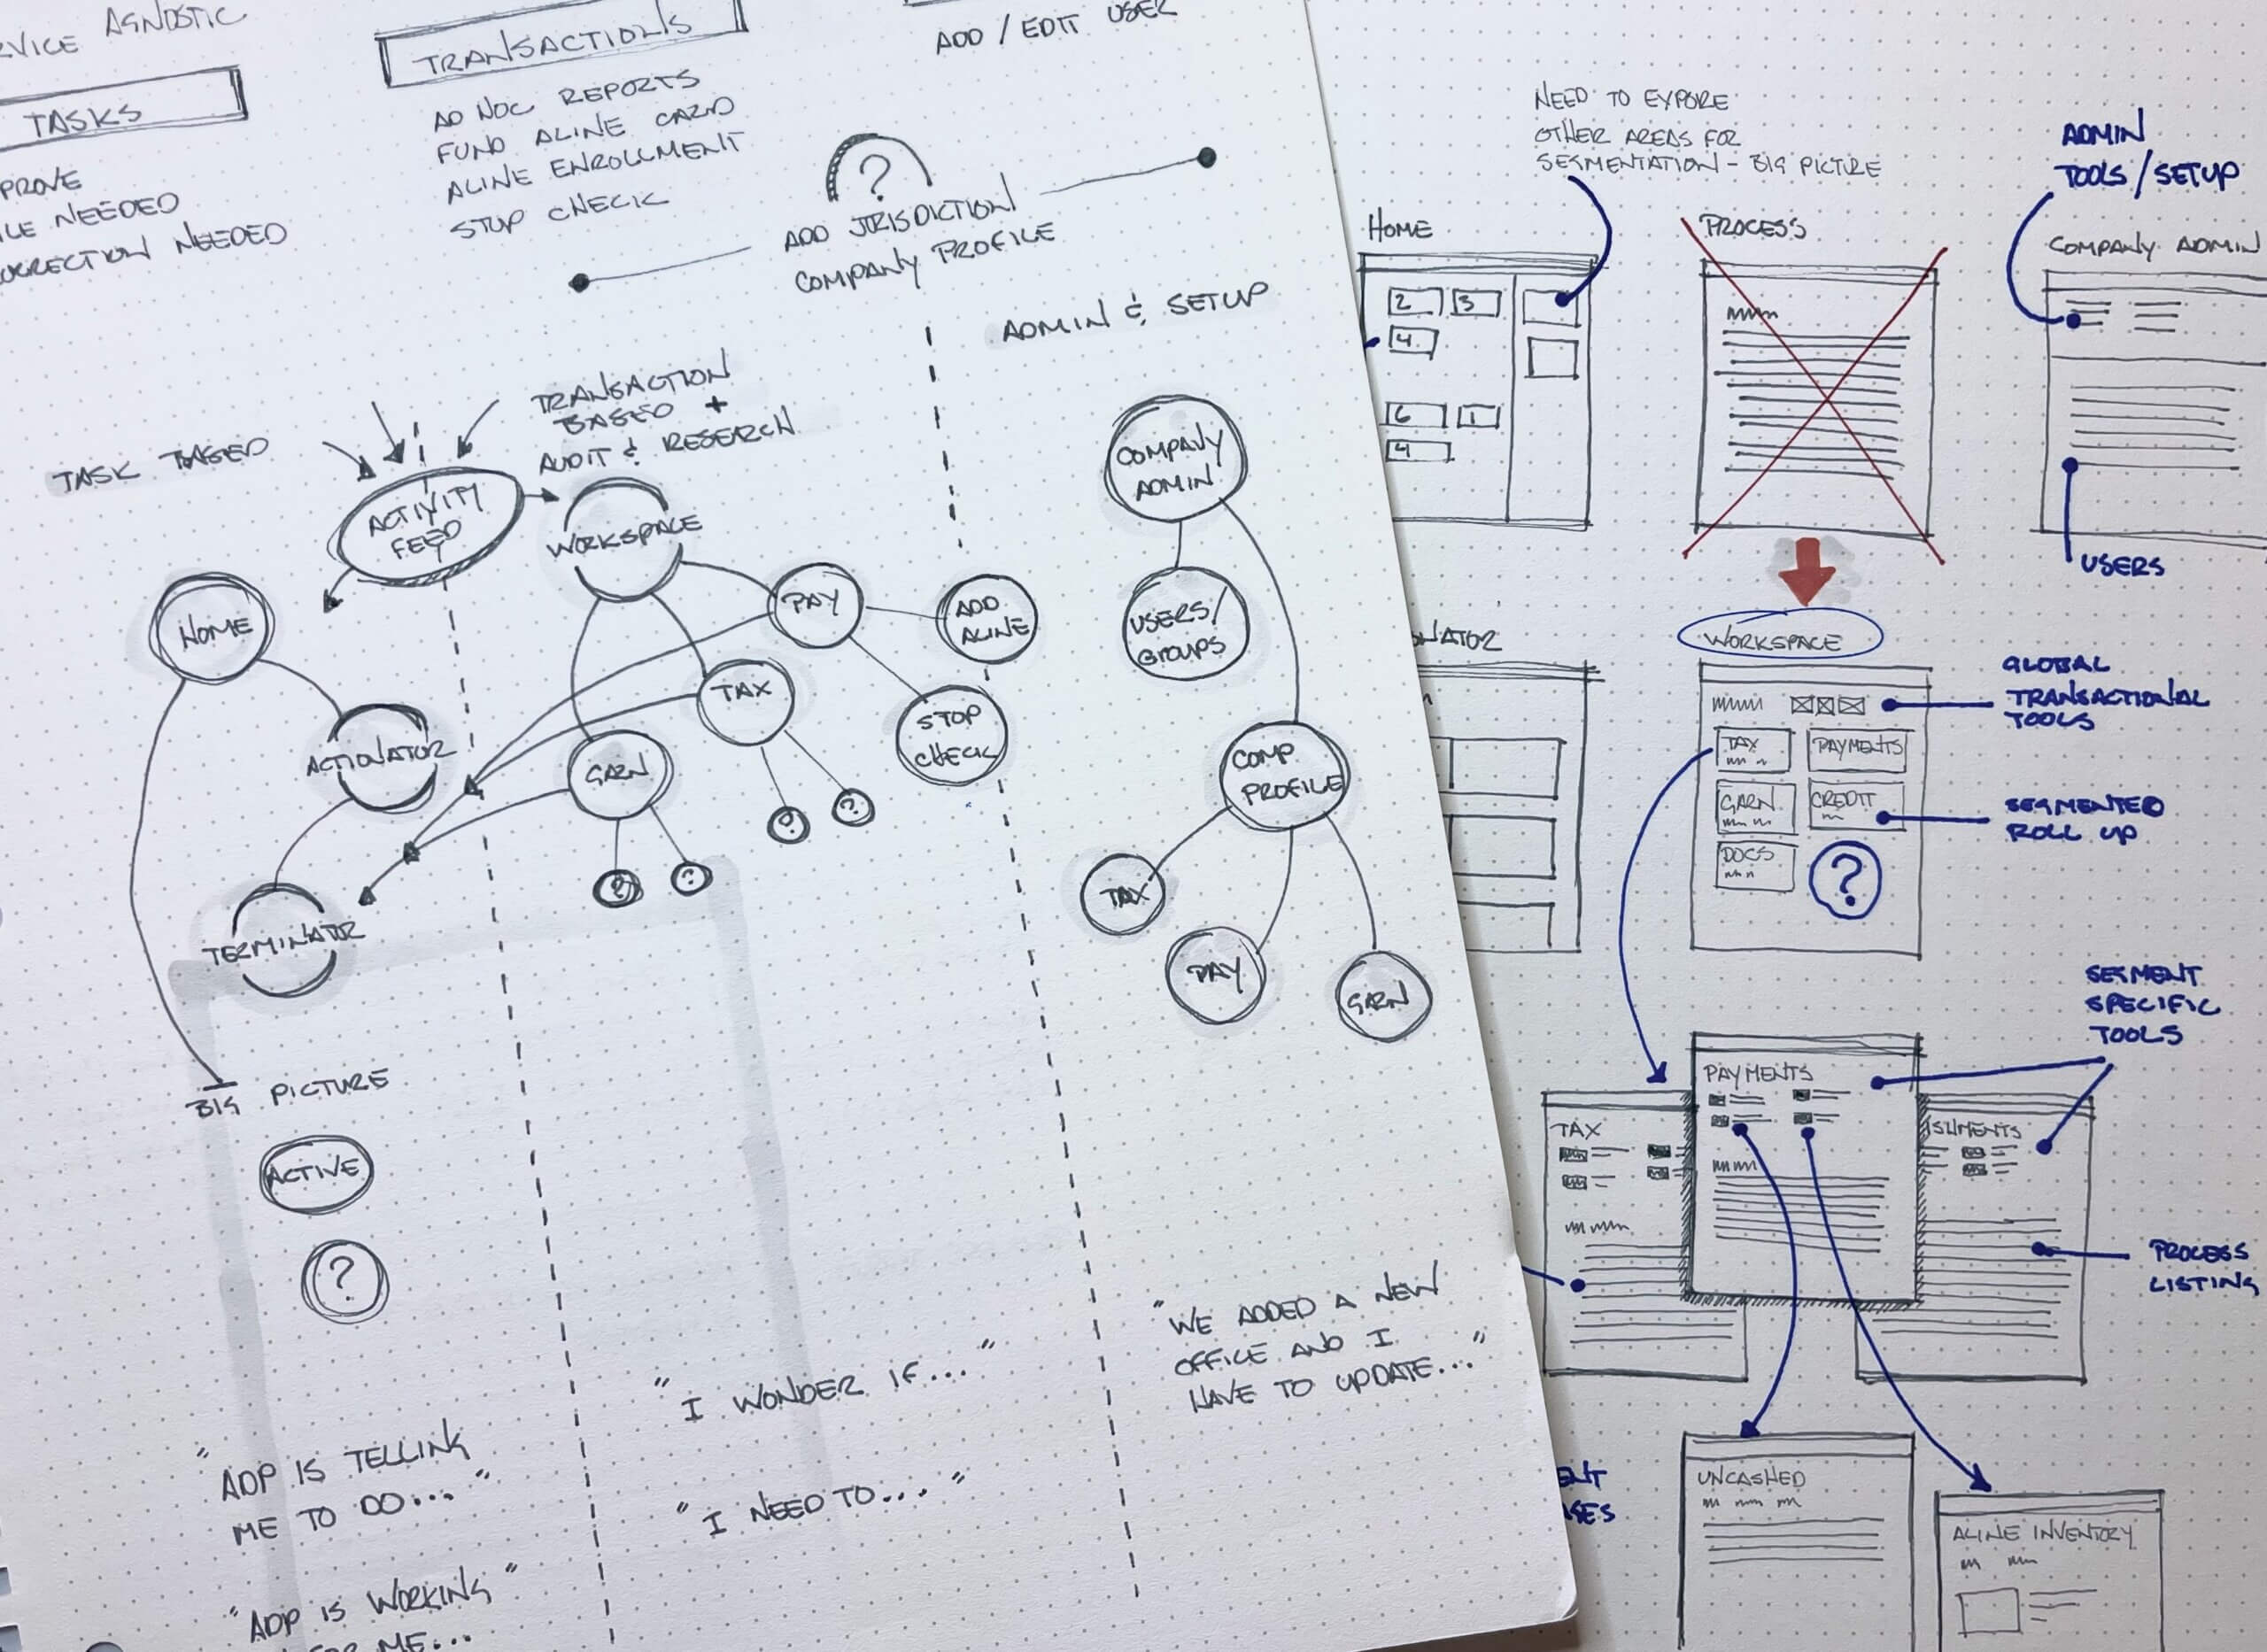 AGNOSTIC
TASKS
NEEDED
NEEDED
TRANSACTIONS
AD HOC REPORTS
FUND ALINE CARD
ALINE ENROLLMENT
STOP CHECK
ADD / EDIT USER
?
ADD JRISDICTION
COMPANY PROFILE
TASK BASED
TRANSACTION
BASED +
AUDIT & RESEARCH
ADMIN & SETUP
ACTIVITY
FEED
WORKSPACE
HOME
PAY
ADD
ALINE
TAX
STOP
CHECK
ACTIONATOR
GARN
?
?
?
?
TERMINATOR
BIG PICTURE
ACTIVE
?
COMPANY
ADMIN
USERS/
GROUPS
COMP
PROFILE
TAX
PAY
GARN
"ADP IS TELLING
ME TO DO..."
"ADP IS WORKING"
ME...
"I WONDER IF..."
"I NEED TO..."
"WE ADDED A NEW
OFFICE AND I
HAVE TO UPDATE..."
NEED TO EXPORE
OTHER AREAS FOR
SEGMENTATION - BIG PICTURE
HOME
2 3
4
6 1
4
PROCESS
ADMIN
TOOLS/SETUP
COMPANY ADMIN
USERS
WORKSPACE
GLOBAL
TRANSACTIONAL
TOOLS
TAX
PAYMENTS
GARN
CREDIT
DOCS
?
SEGMENTED
ROLL UP
SEGMENT
SPECIFIC
TOOLS
PAYMENTS
TAX
PROCESS
LISTING
UNCASHED
ALINE INVENTORY